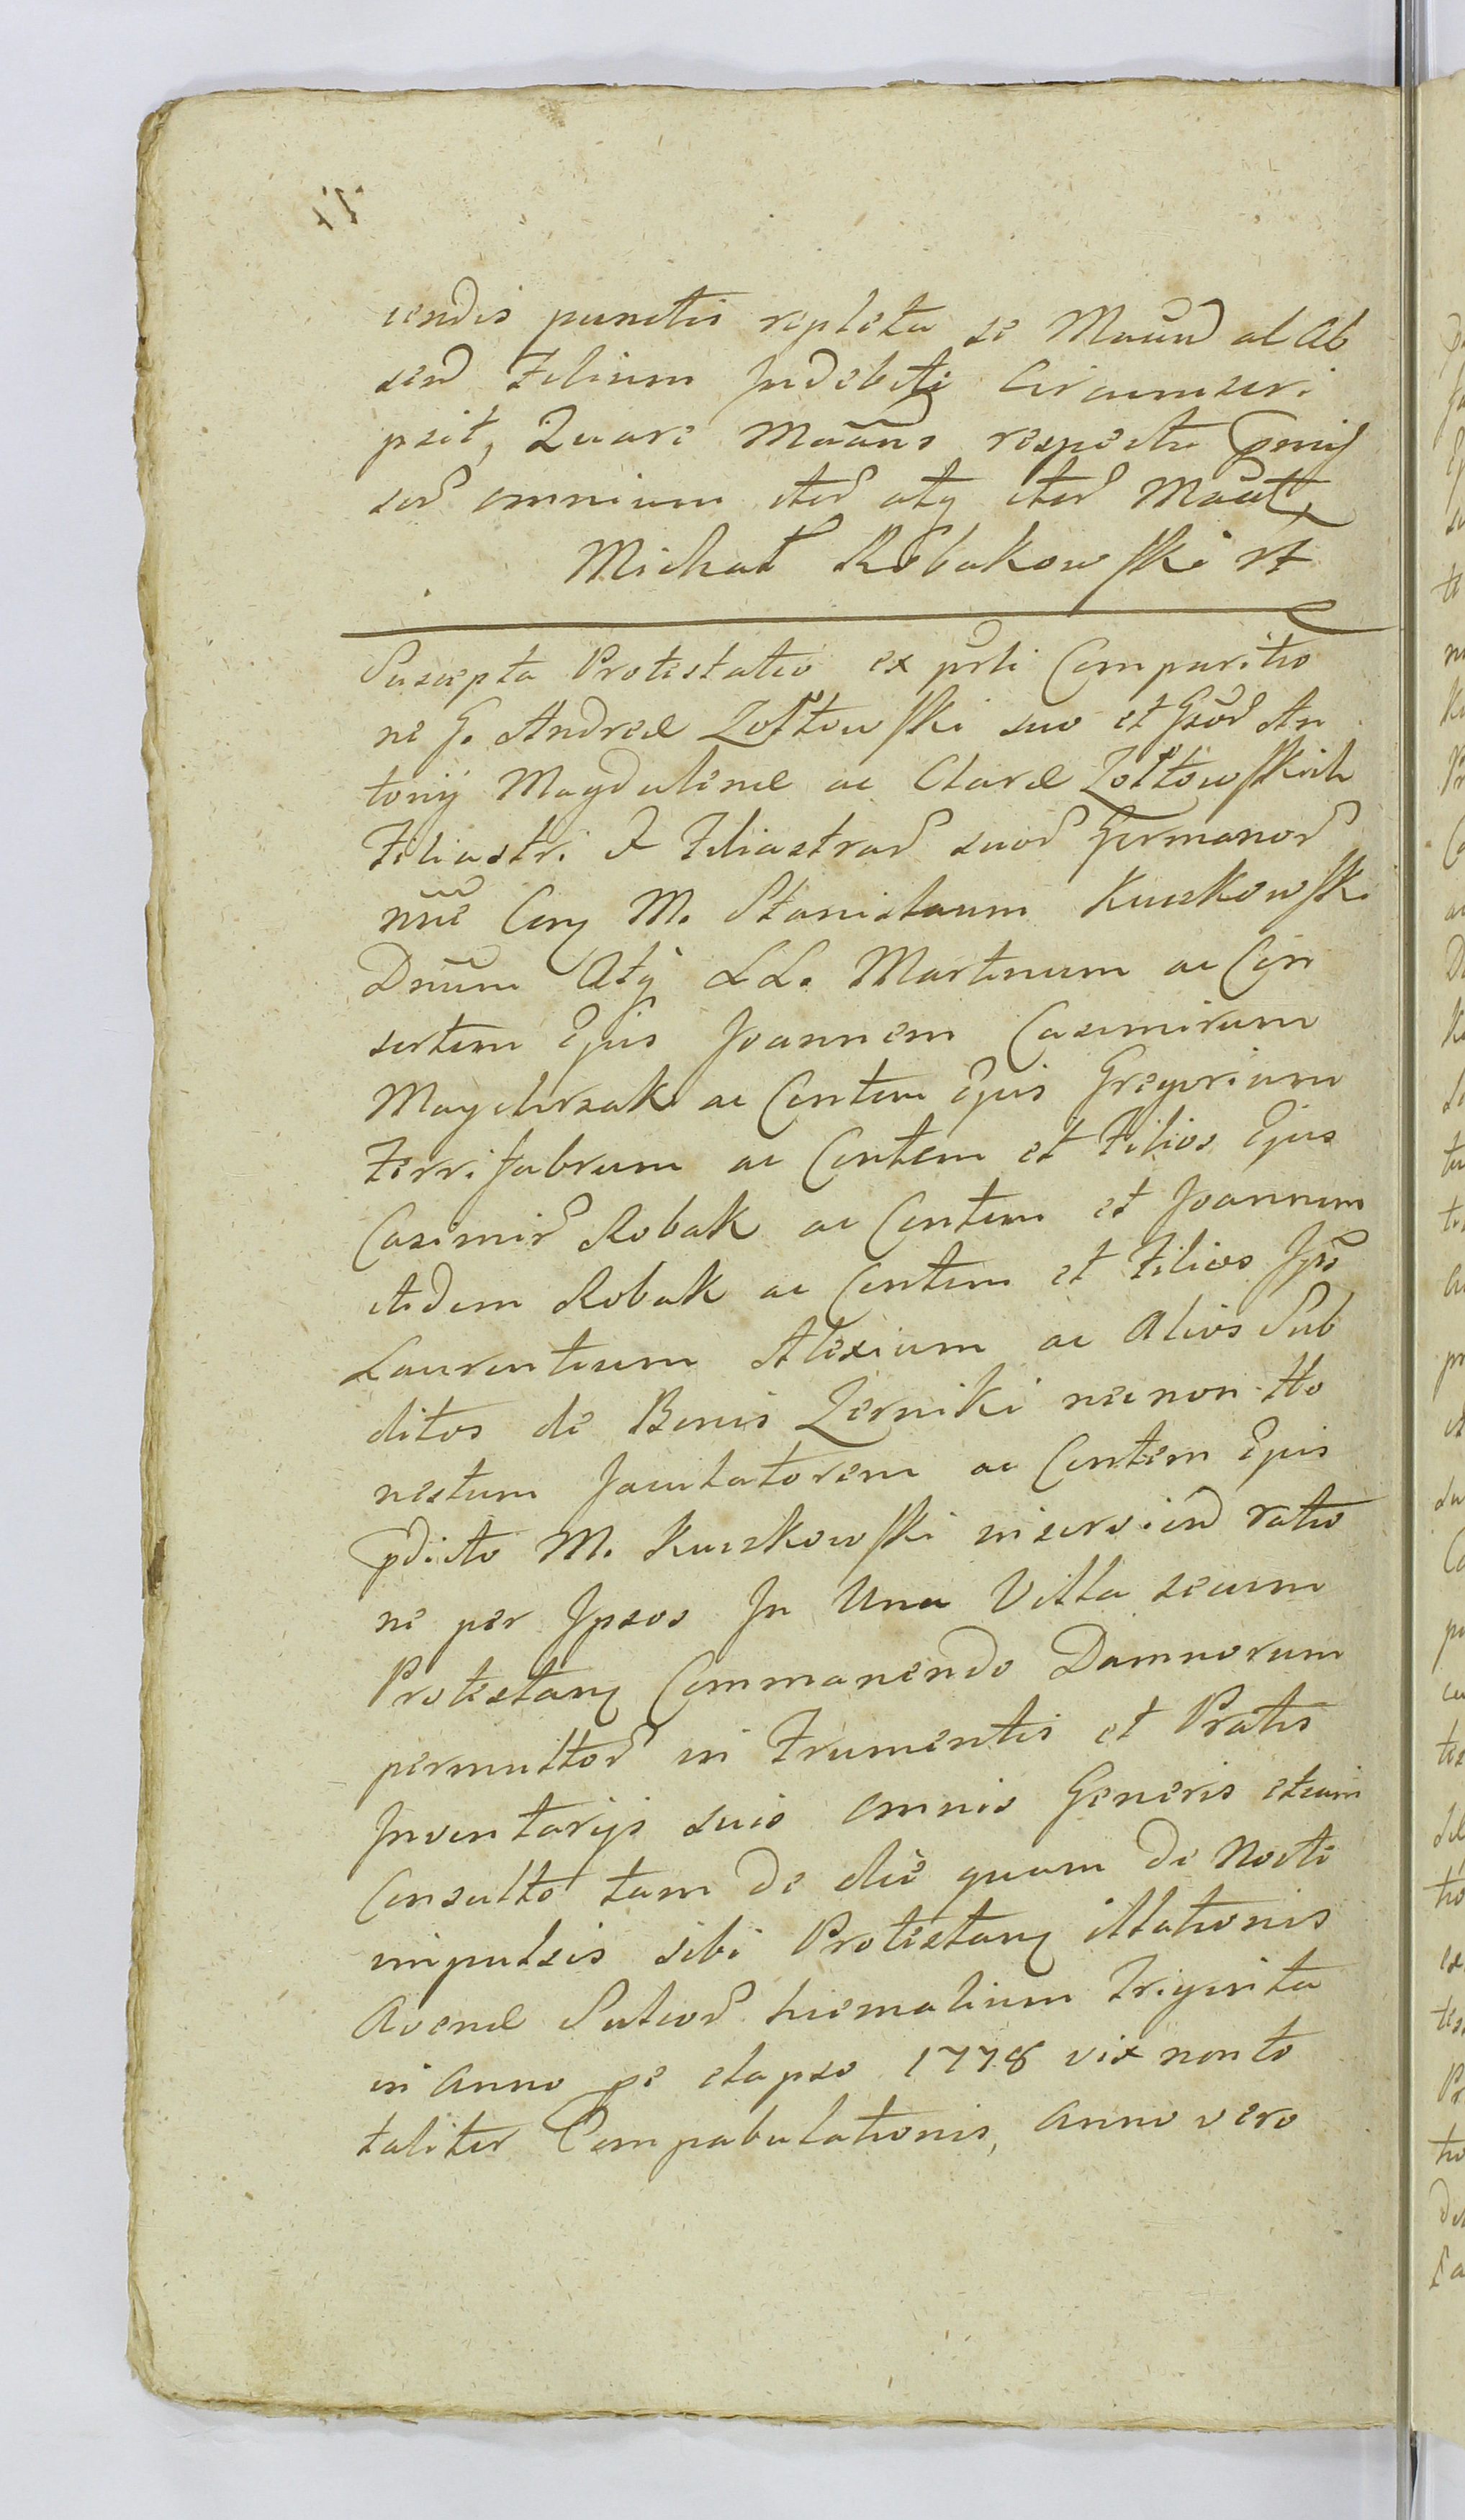 cendis punctis repleta se Maãnd al ab
send Filium Indebite Circumscri
psit, Quare Maãns respectu pmis
sor omnium itedo atq itedo Maãt,
Michał Robakowski
Suscepta Protestatio ex pñti Comparitio
ne G. Andreæ Zołtowski suo et Gsod An
tonij Magdalenæ ac Claræ Zołtowskich
Filiastri & Filiastrar suor Germanor
nñe Cong M. Stanislaum Kuczkowski
Dñum Atq LL. Martinum ac Con
sortem Ejus Joannem Casimirum
Maycherzak ac Contem Ejus Gregorium
Ferri fabrum ac Contem et Filios Ejus
Casimir Robak ac Contem et Joannem
itidem Robak ac Contem et Filios Ips
Laurentium Alexium ac alios Sub
ditos de Bonis Zerniki necnon Ho
nestum Jaculatorem ac Contem Ejus
pdicto M. Kuczkowski inserviend ratio
ne per Ipsos In Una Villa secum
Protestang Commanendo Damnorum
permultor in Frumentis et Pratis
Inventarijs suis omnis Generis etiam
Consulto tam de die quam de Nocte
impulsis sibi Protestang illationis
Avenæ Sation hiemalium Triginta
in Anno pe elapso 1778 vix non to
taliter Compabulationis, Anno vero